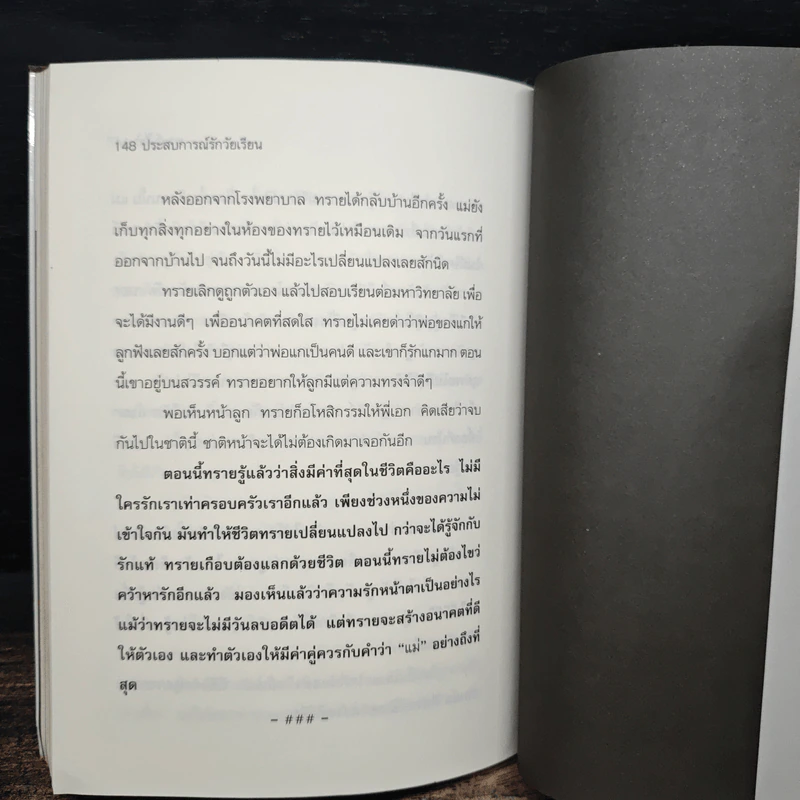 148 ประสบการณ์รักวัยเรียน
หลังออกจากโรงพยาบาล ทรายได้กลับบ้านอีกครั้ง แม่ยัง
เก็บทุกสิ่งทุกอย่างในห้องของทรายไว้เหมือนเดิม จากวันแรกที่
ออกจากบ้านไป จนถึงวันนี้ไม่มีอะไรเปลี่ยนแปลงเลยสักนิด
ทรายเลิกดูถูกตัวเอง แล้วไปสอบเรียนต่อมหาวิทยาลัย เพื่อ
จะได้มีงานดีๆ เพื่ออนาคตที่สดใส ทรายไม่เคยด่าว่าพ่อของแกให้
ลูกฟังเลยสักครั้ง บอกแต่ว่าพ่อแกเป็นคนดี และเขาก็รักแกมาก ตอน
นี้เขาอยู่บนสวรรค์ ทรายอยากให้ลูกมีแต่ความทรงจำดีๆ
พอเห็นหน้าลูก ทรายก็อโหสิกรรมให้พี่เอก คิดเสียว่าจบ
กันไปในชาตินี้ ชาติหน้าจะได้ไม่ต้องเกิดมาเจอกันอีก
ตอนนี้ทรายรู้แล้วว่าสิ่งมีค่าที่สุดในชีวิตคืออะไร ไม่มี
ใครรักเราเท่าครอบครัวเราอีกแล้ว เพียงช่วงหนึ่งของความไม่
เข้าใจกัน มันทำให้ชีวิตทรายเปลี่ยนแปลงไป กว่าจะได้รู้จักกับ
รักแท้ ทรายเกือบต้องแลกด้วยชีวิต ตอนนี้ทรายไม่ต้องไขว่
คว้าหารักอีกแล้ว มองเห็นแล้วว่าความรักหน้าตาเป็นอย่างไร
แม้ว่าทรายจะไม่มีวันลบอดีตได้ แต่ทรายจะสร้างอนาคตที่ดี
ให้ตัวเอง และทำตัวเองให้มีค่าคู่ควรกับคำว่า "แม่" อย่างถึงที่
สุด
- ### -